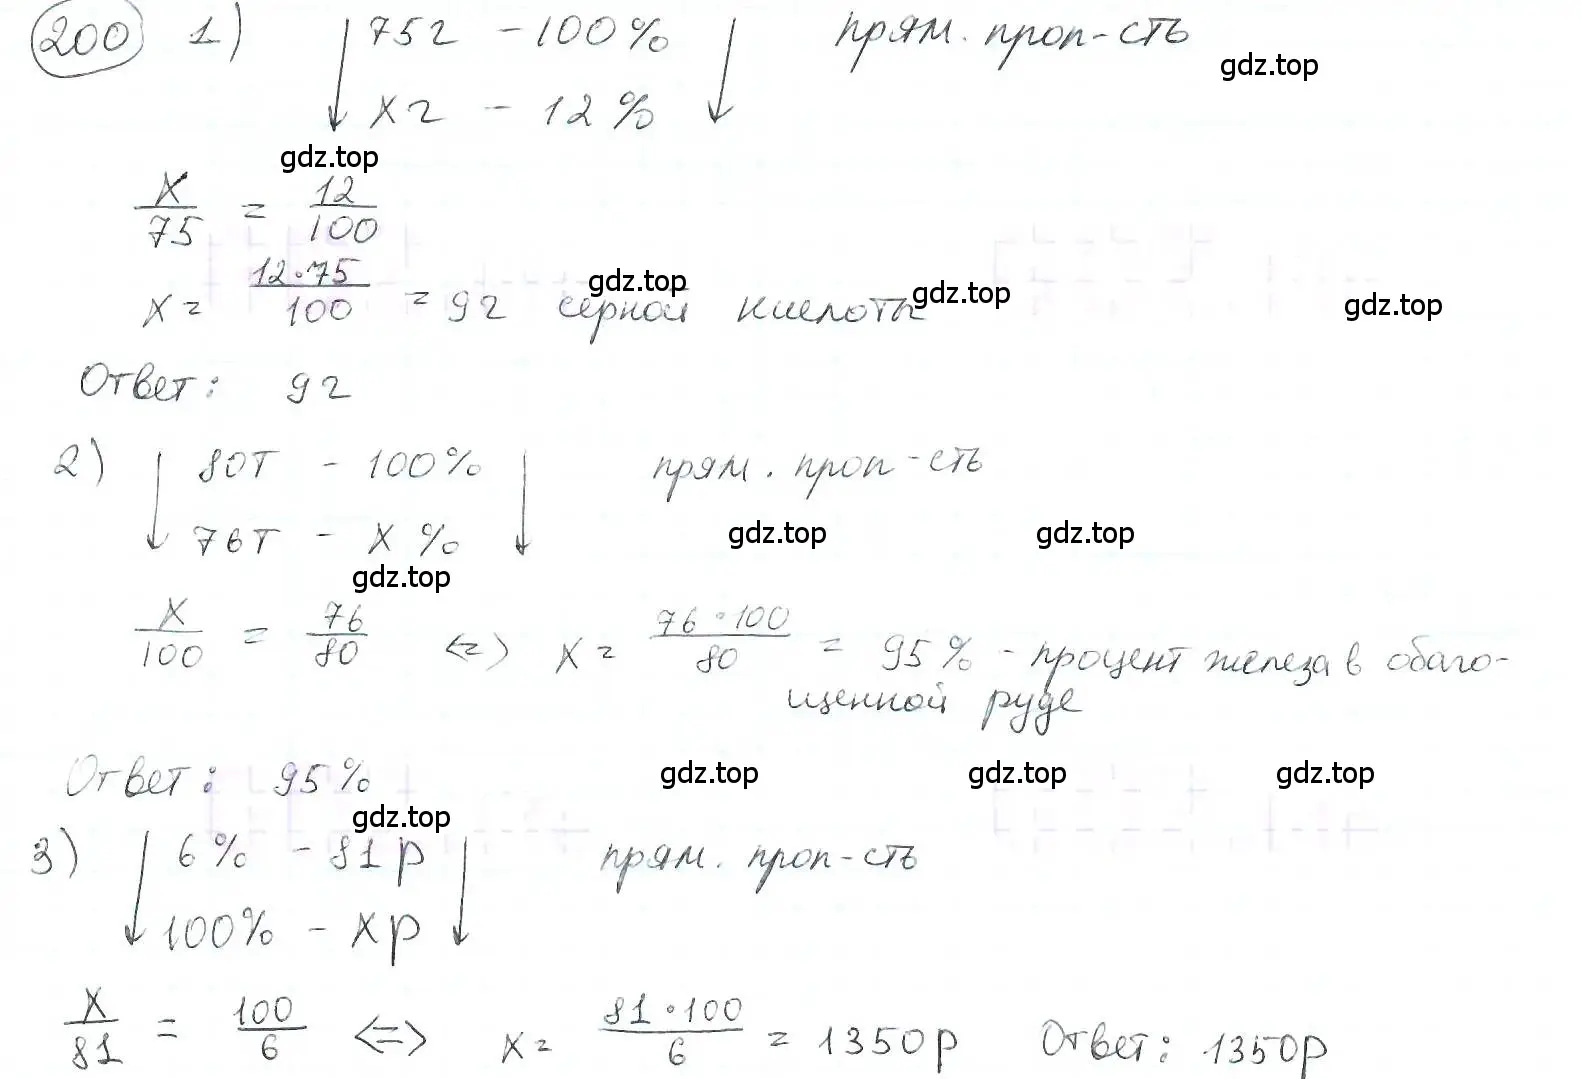 200 1) 75г - 100% прям. проп-сть
gdz.top
xг - 12%
gdz.top
x/75 = 12/100
x = 12·75/100 = 9г серной кислоты
gdz.top gdz.top gdz.top
Ответ: 9г
2) 80т - 100% прям. проп-сть
76т - x%
gdz.top gdz.top
gdz.top
x/100 = 76/80 <=> x = 76·100/80 = 95% - процент железа в обаго-
щенной руде
Ответ: 95%
gdz.top gdz.top gdz.top
gdz.top
3) 6% - 81р прям. проп-сть
100% - xр
x/81 = 100/6 <=> x = 81·100/6 = 1350р Ответ: 1350р